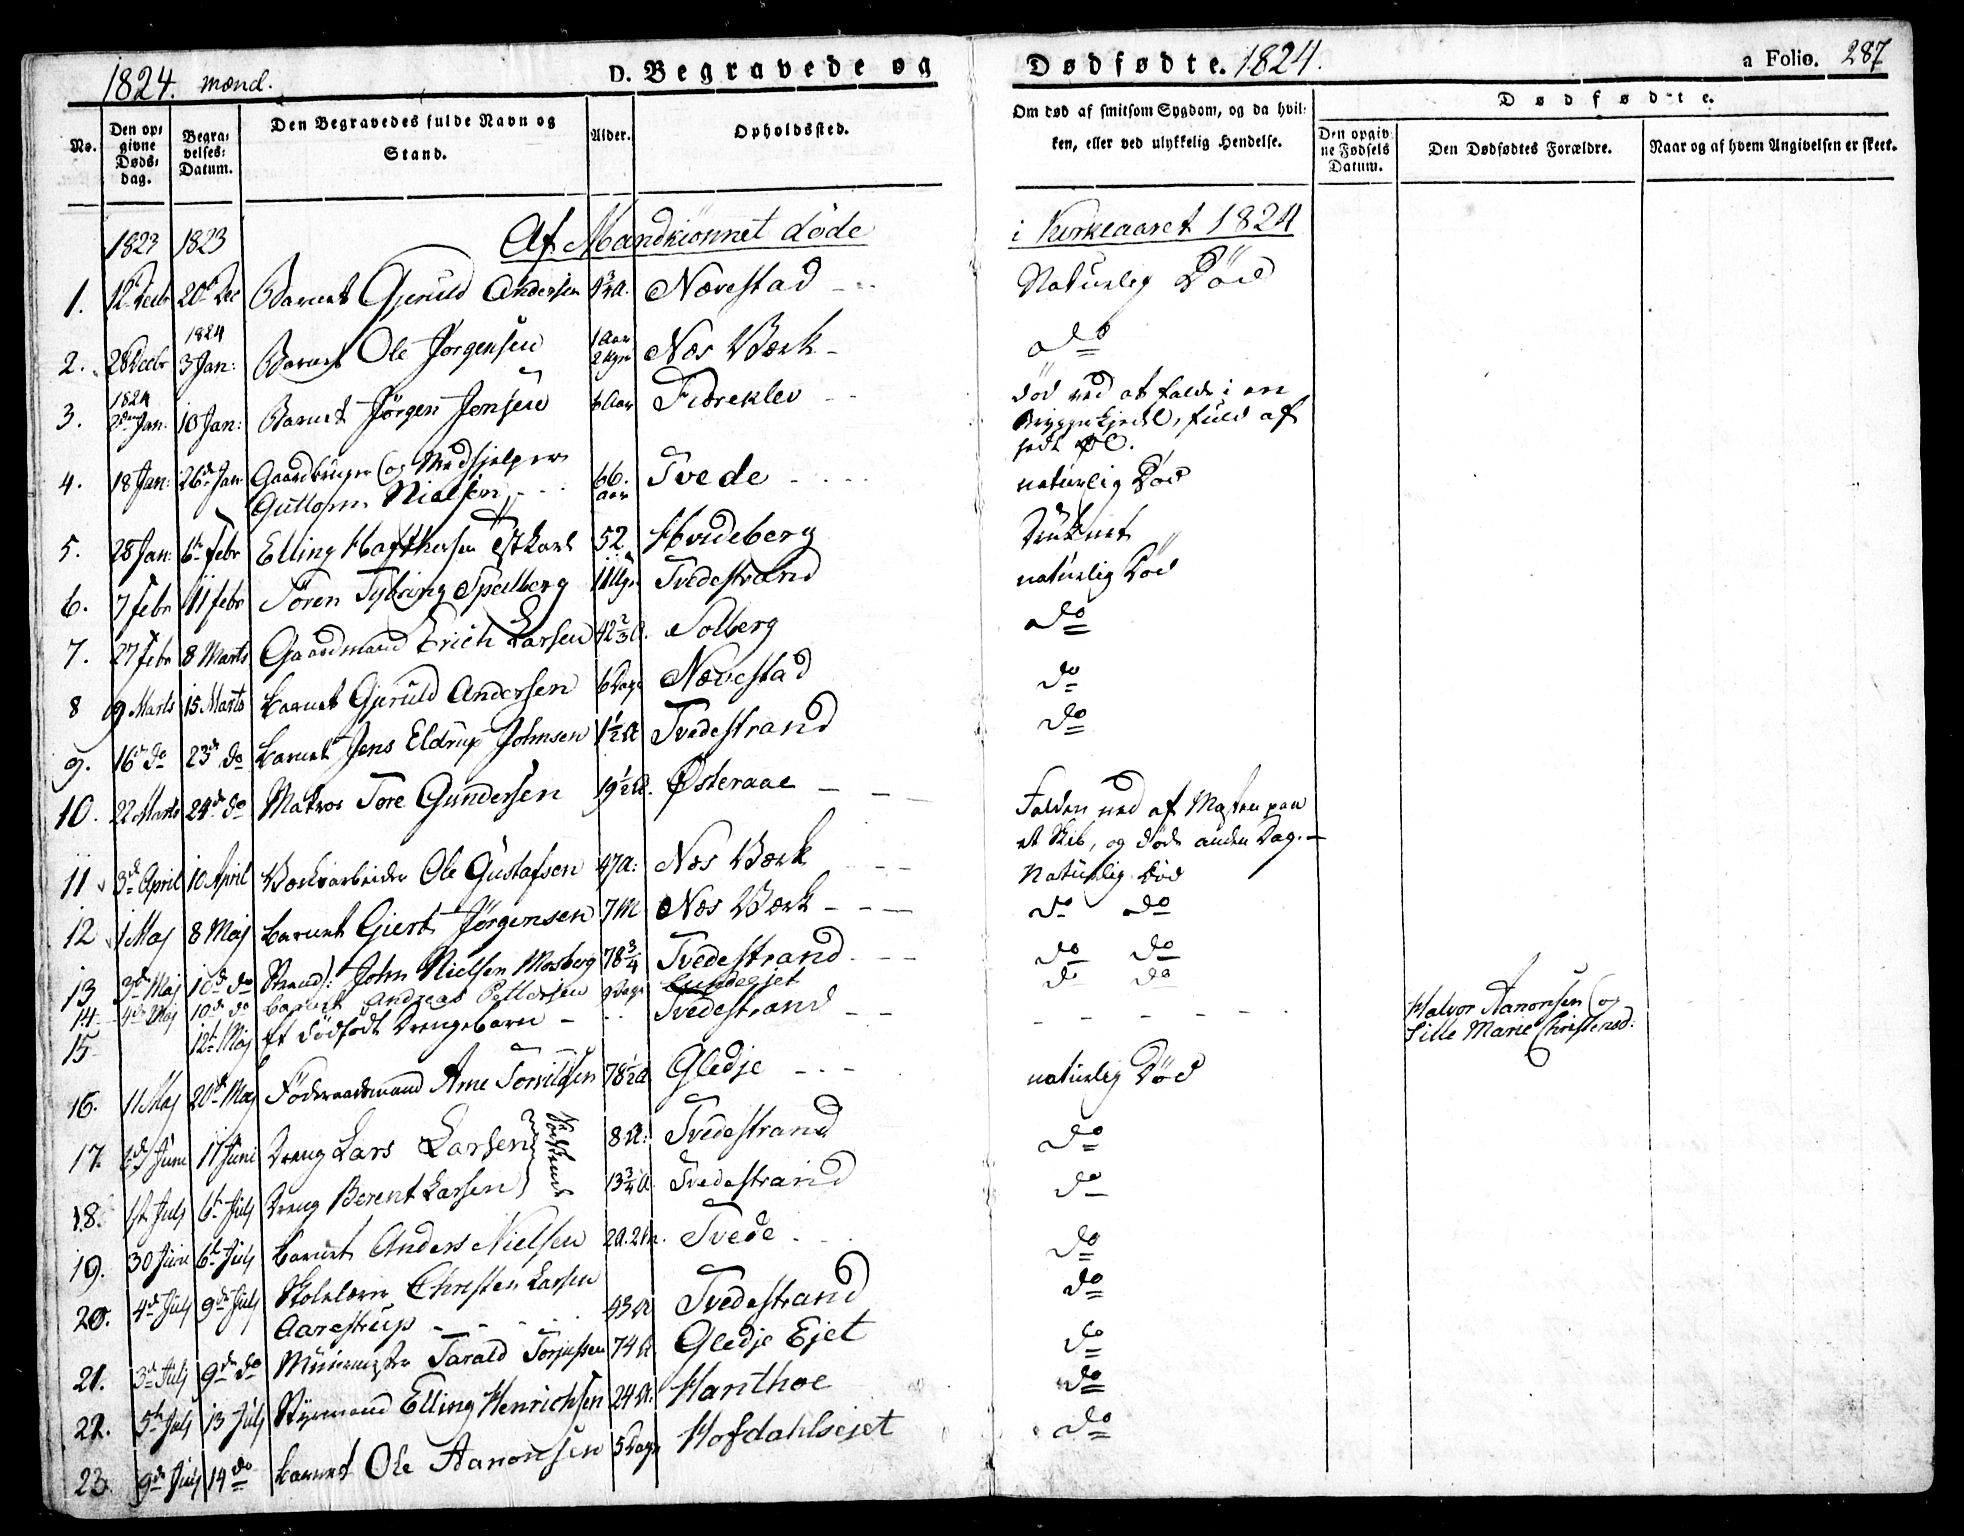 1824. mænd.
D. Begravede og
Dødfødte. 1824.
a Folio. 287
No.
Den opgivne Døds: dag.
Begravelses: Datum.
Den Begravedes fulde Navn og Stand.
Alder.
Opholdssted.
Om død af smitsom Sygdom, og da hvilken, eller ved ulykkelig Hendelse.
Dødfødte.
Den opgivne Fødsels Datum.
Den Dødfødtes Forældre.
Naar og af hvem Angivelsen er skeet.
1823 1823 Af Mandkiønnet døde i Kirkeaaret 1824
1. 12 Decbr 20d Dec Barnet Gjeruld Andersen Nævestad Naturlig Død
1824
2. 28 Decbr 3 Jan: Barnet Ole Jørgensen 1 Aar Næs Værk do
1824
3. 2den Jan. 10 Jan: Barnet Jørgen Jensen 6 Aar Fidreklev død ved at falde i en
Bryggekjedel, fuld af
hedt Øl.
4. 18 Jan: 26d Jan Gaardbruger og Medhjelper
Guttorm Nielsen 66. aar Tvede naturlig Død
5. 28 Jan: 6te Febr Elling 52 Hvideberg Druknet
6. 7 Febr 11 Febr Søren Tybring Spelberg 11 Tvedestrand naturlig Død
7. 27 Febr 8 Marts Gaardmand Erich Larsen 42 2/3 A. Solberg do
8 9 Marts 15 Marts barnet Gjeruld Andersen 6 Dage Nævestad do
9. 16d do 23d do barnet Jens Eldrup Johnsen 1 1/2 A Tvedestrand do
10. 22 Marts 24d do Matros Tore Gundersen 19 1/2 A. Østeraae Falden ned af Masten paa
et Skib, og døde anden Dag.
11 3d April 10 April Værksarbeider Ole Gustafsen 47 A: Næs Værk Naturlig Død
12 1 Maj 8 Maj barnet Giert Jørgensen 7 M Næs Værk do do
13 3d Maj 10d do Strand: John Nielsen Mosberg 78 3/4 Tvedestrand do do
14. 4d Maj 10d do barnet Andreas Pettersen Dage do do
15 12te Maj Et dødfødt Drengebarn Tvedestrand Halvor Aanonsen og
Sille Marie Christensd:
16. 11 Maj 20d Maj Føderaadsmand Arne 78 1/2 A Gledje naturlig Død
17. 6d Juni 11 Juni Dreng Lars Larsen 8 A: Tvedestrand do
18. 1st Julj 6te Julj Dreng Berent Larsen 13 3/4 A. Tvedestrand do
19. 30 Juni 6te Julj barnet Anders Nielsen 2 A. 2 M. Tvede do
20. 4d Julj 9d Julj Skolelærer Christen Larsen
Aarestrup 43 A Tvedestrand do
21. 3d Julj 9d do Muurmester Tarald Torjussen 74 A Gledje Ejet do
22. 5te Julj 13 Julj Styrmand Elling Henrichsen 24 A. Hanthoe do
23 9d Julj 14 do barnet Ole Aanonsen 5 Dage Hofdahlsejet do